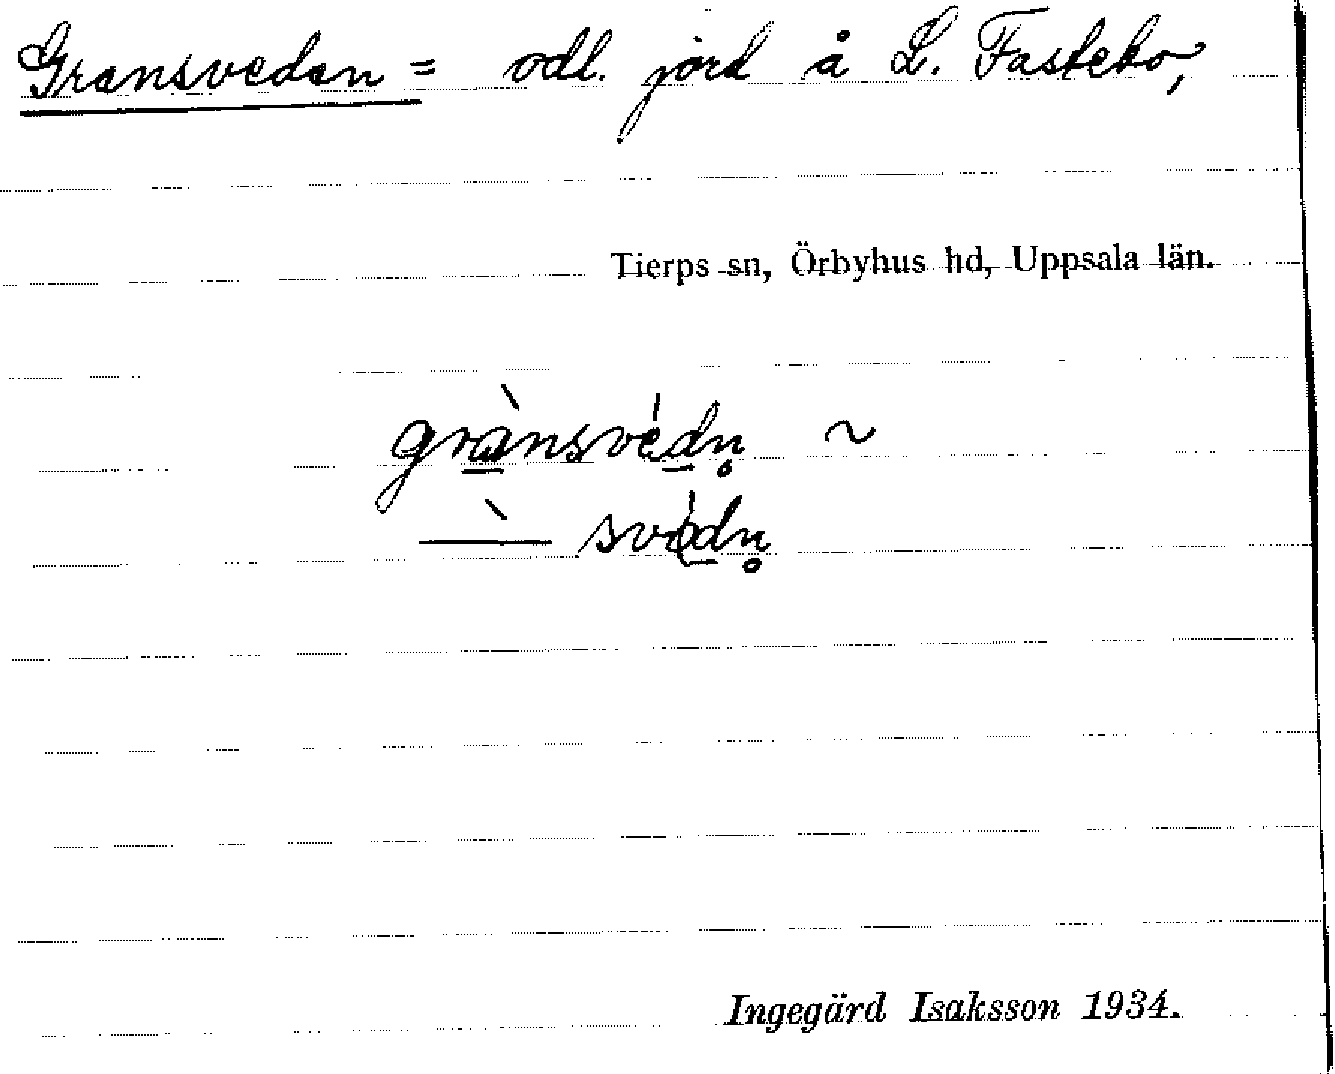 Gransveden = odl. jord å L. Fastebo,
Tierps sn, Örbyhus hd, Uppsala län.
grànsvédn̥ ~
—̀ svédn̥
Ingegärd Isaksson 1934.